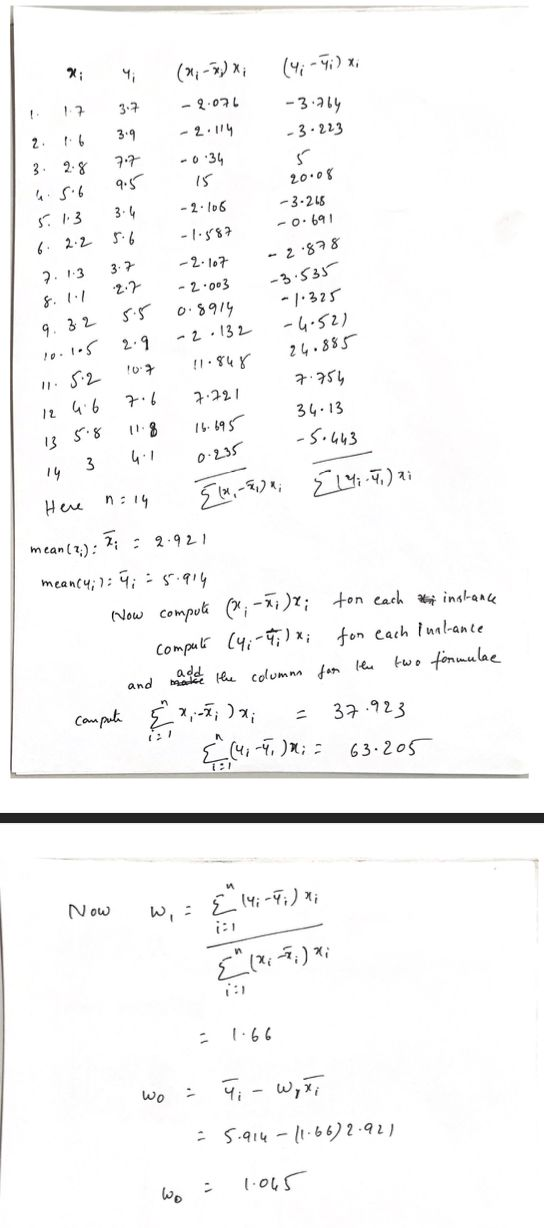 xi yi (xi-x̄i)xi (yi-ȳi)xi
1. 1.7 3.7 -2.076 -3.764
2. 1.6 3.9 -2.114 -3.223
3. 2.8 7.7 -0.34 5
4. 5.6 9.5 15 20.08
5. 1.3 3.4 -2.106 -3.268
6. 2.2 5.6 -1.587 -0.691
7. 1.3 3.7 -2.107 -2.878
8. 1.1 2.7 -2.003 -3.535
9. 3.2 5.5 0.8914 -1.325
10. 1.5 2.9 -2.132 -4.521
11. 5.2 10.7 11.848 24.885
12 4.6 7.6 7.721 7.754
13 5.8 11.8 16.695 34.13
14 3 4.1 0.235 -5.443
Here n=14 Σ(xi-x̄i)xi Σ(yi-ȳi)xi
mean(xi): x̄i = 2.921
mean(yi): ȳi = 5.914
Now compute (xi-x̄i)xi for each instance
compute (yi-ȳi)xi for each instance
and add the columns for the two formulae
compute Σ xi-x̄i)xi = 37.923
n i=1
Σ(yi-ȳi)xi = 63.205
n i=1
Now w1 = Σ(yi-ȳi)xi
n i=1
Σ(xi-x̄i)xi
n i=1
= 1.66
w0 = ȳi - w1x̄i
= 5.914-(1.66)2.921
w0 = 1.045